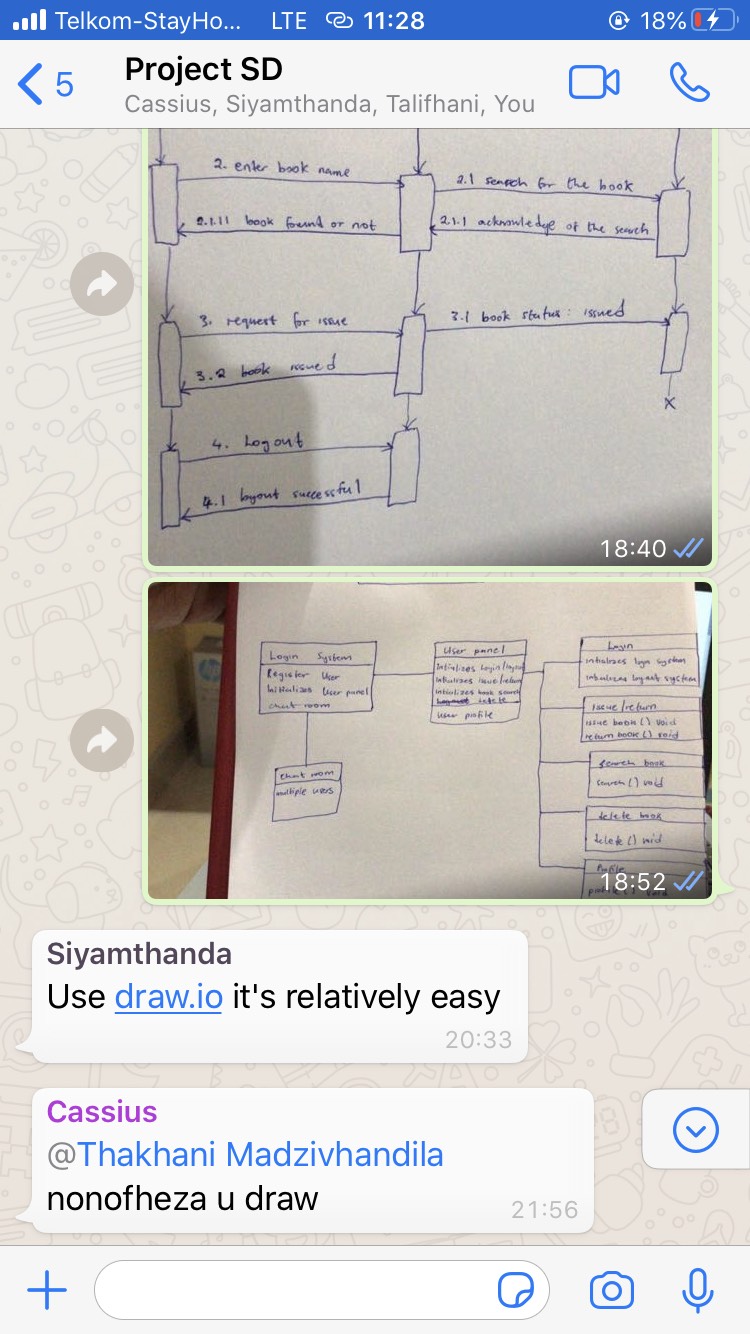 Telkom-StayHo... LTE 11:28 18%
5
Project SD
Cassius, Siyamthanda, Talifhani, You
2. enter book name
2.1 search for the book
2.1.11 book found or not
2.1.1 acknowledge of the search
3. request for issue
3.1 book status : issued
3.2 book issued
X
4. Logout
4.1 logout successful
18:40
Login System
Register User
Initializes User panel
chat room
chat room
multiple users
User panel
Intializes Login/logout
Intializes issue/return
Intializes book search
delete
User profile
Login
intializes login system
intializes logout system
issue/return
issue book () void
return book () void
search book
search () void
delete book
delete () void
Profile
18:52
Siyamthanda
Use draw.io it's relatively easy
20:33
Cassius
@Thakhani Madzivhandila
nonofheza u draw
21:56